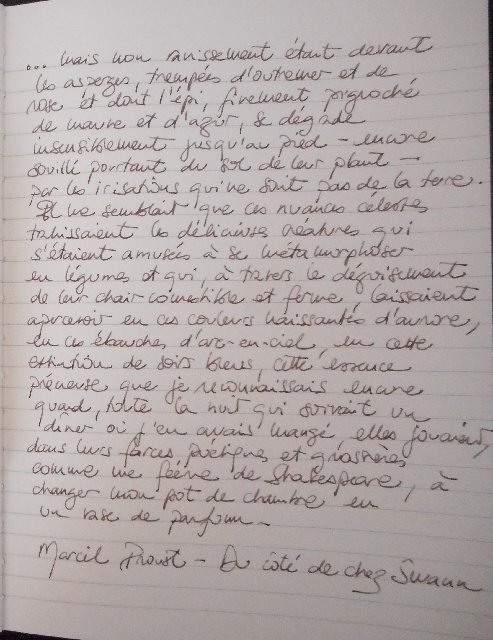 ... mais mon ravissement était devant
les asperges, trempées d'outremer et de
rose et dont l'épi, finement pignoché
de mauve et d'azur, se dégrade
insensiblement jusqu'au pied – encore
souillé pourtant du sol de leur plant –
par les irisations qui ne sont pas de la terre.
Il me semblait que ces nuances célestes
trahissaient les délicieuses créatures qui
s'étaient amusées à se métamorphoser
en légumes et qui, à travers le déguisement
de leur chair comestible et ferme, laissaient
apercevoir en ces couleurs naissantes d'aurore,
en ces ébauches d'arc-en-ciel, en cette
extinction de soirs bleus, cette essence
précieuse que je reconnaissais encore
quand, toute la nuit qui suivait un
dîner où j'en avais mangé, elles jouaient,
dans leurs farces poétiques et grossières
comme une féerie de Shakespeare, à
changer mon pot de chambre en
un vase de parfum.
Marcel Proust – Du côté de chez Swann